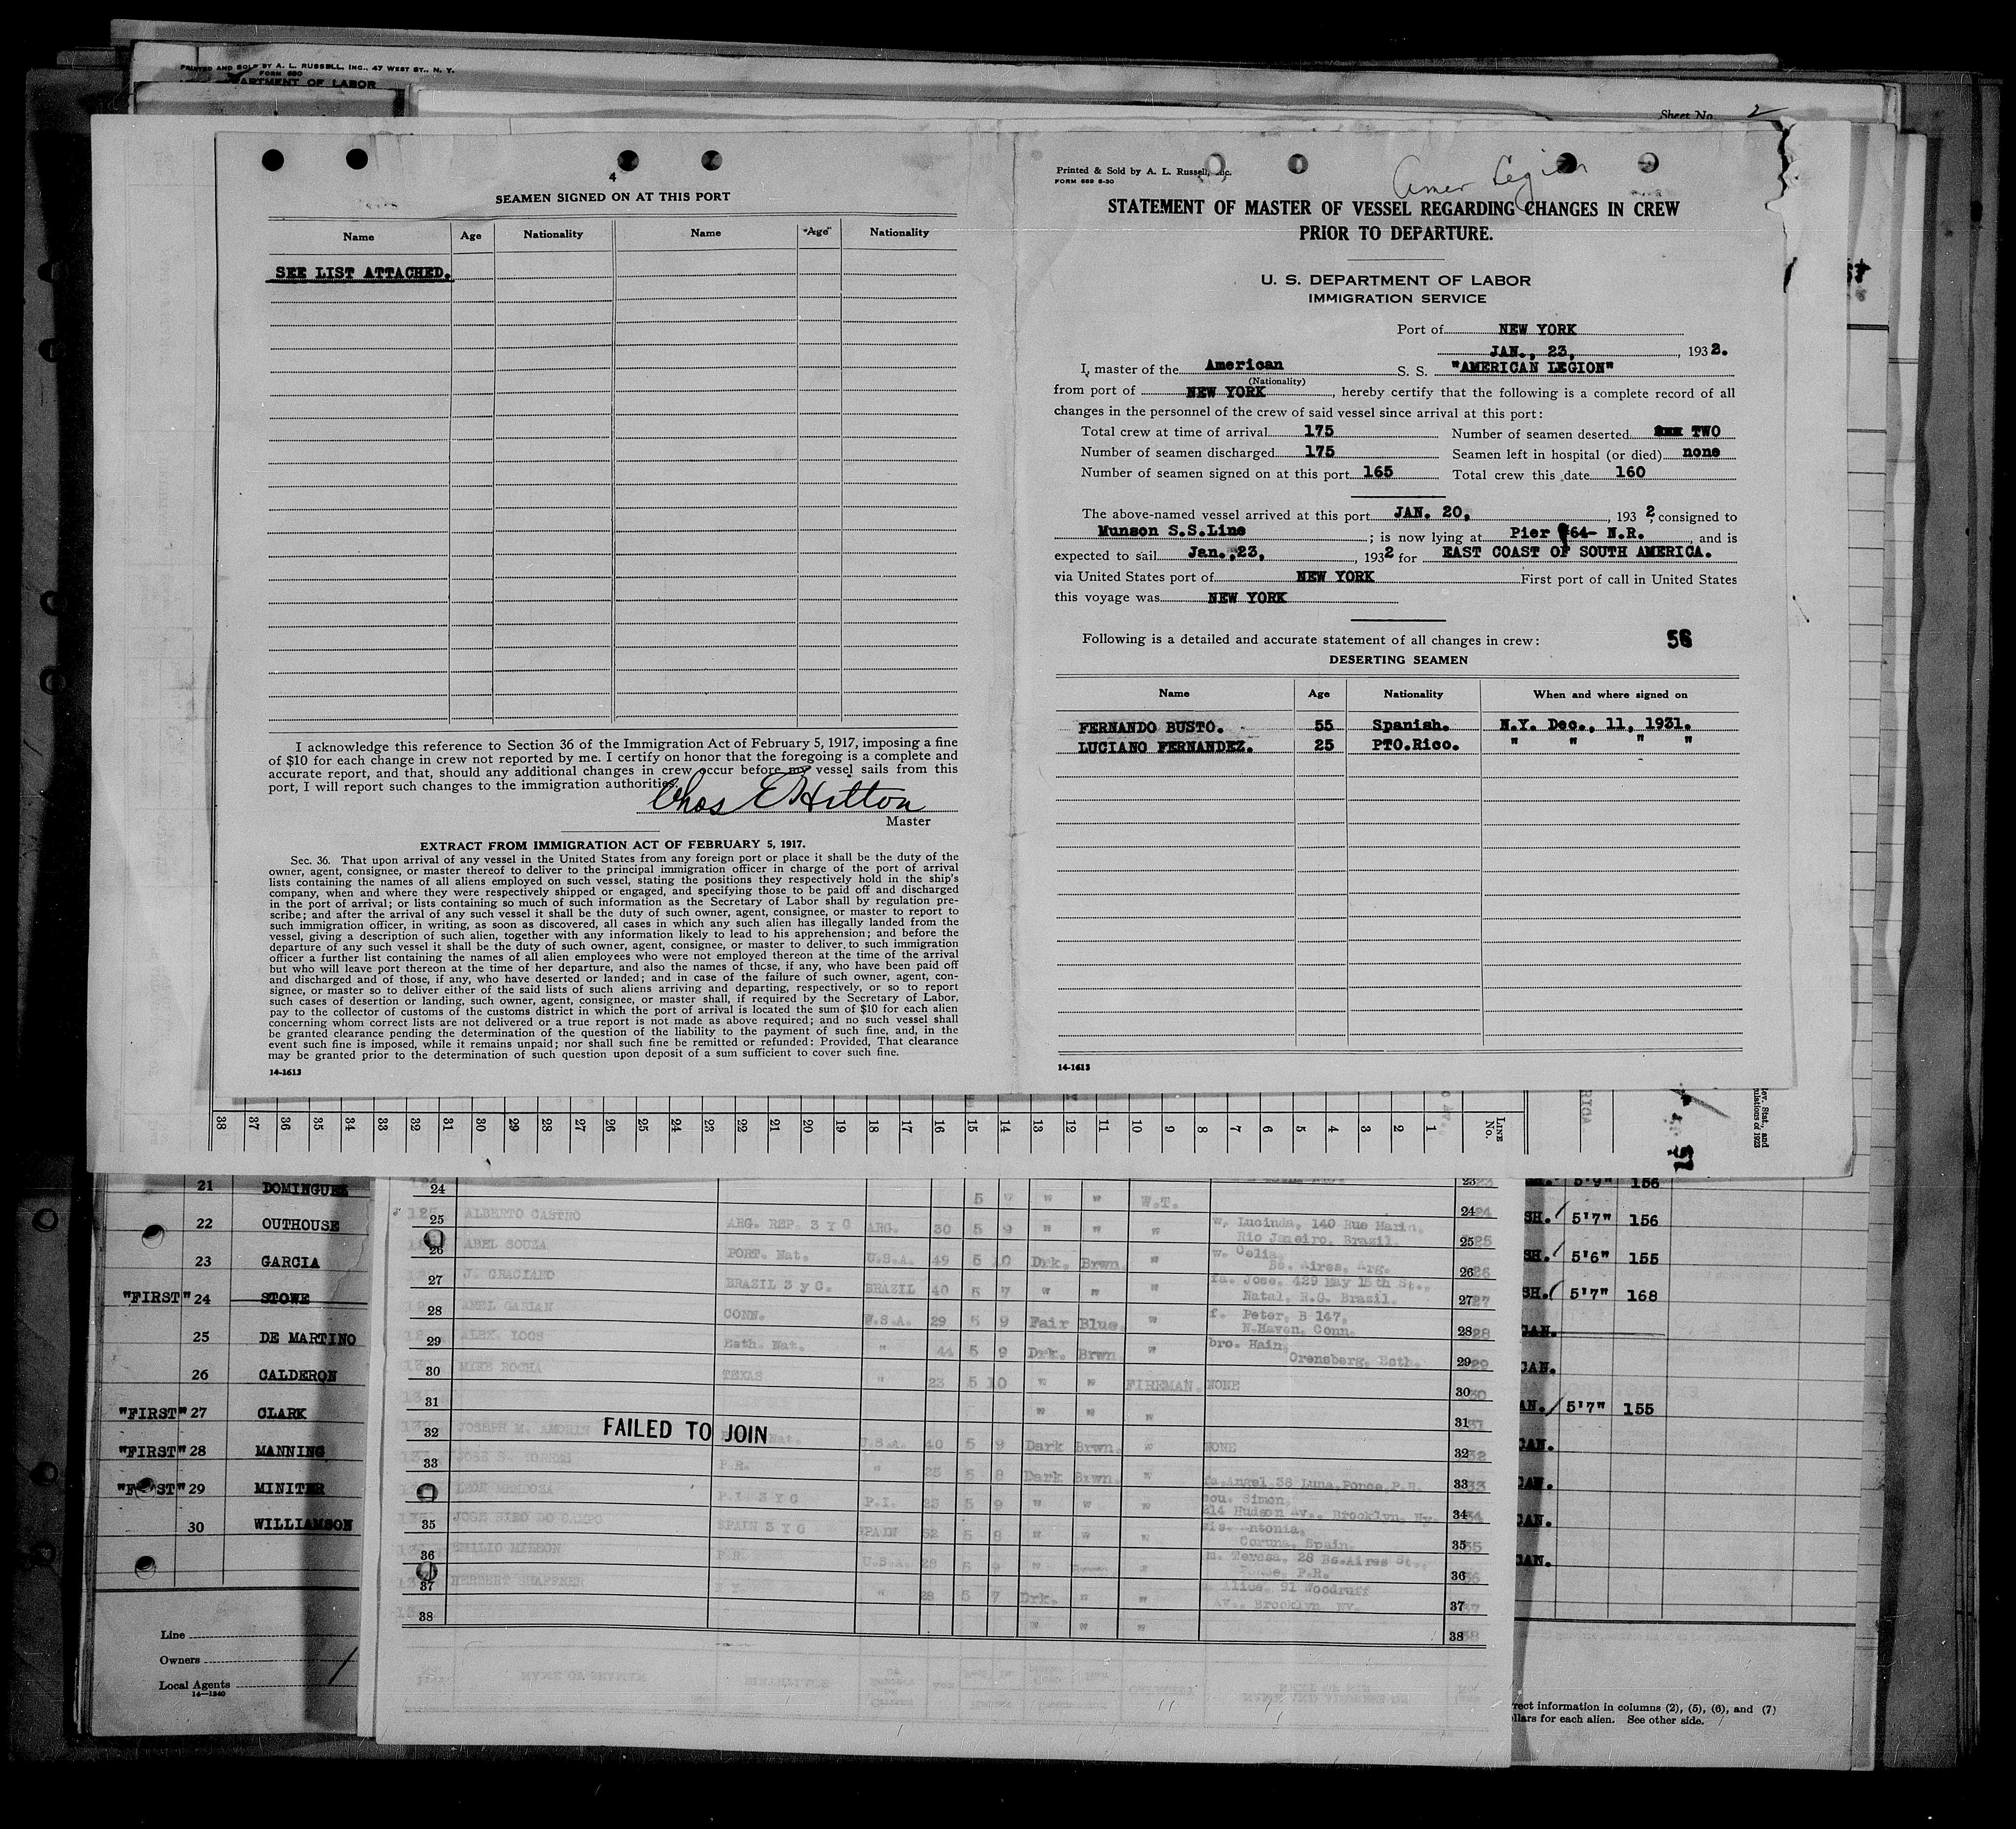 PRINTED AND SOLD BY A. L. RUSSELL, INC., 47 WEST ST., N. Y.
FORM 680
DEPARTMENT OF LABOR
Sheet No. 2
4
SEAMEN SIGNED ON AT THIS PORT
Name Age Nationality Name "Age" Nationality
SEE LIST ATTACHED.
I acknowledge this reference to Section 36 of the Immigration Act of February 5, 1917, imposing a fine
of $10 for each change in crew not reported by me. I certify on honor that the foregoing is a complete and
accurate report, and that, should any additional changes in crew occur before my vessel sails from this
port, I will report such changes to the immigration authorities.
Chas E Hilton
Master
EXTRACT FROM IMMIGRATION ACT OF FEBRUARY 5, 1917.
Sec. 36. That upon arrival of any vessel in the United States from any foreign port or place it shall be the duty of the
owner, agent, consignee, or master thereof to deliver to the principal immigration officer in charge of the port of arrival
lists containing the names of all aliens employed on such vessel, stating the positions they respectively hold in the ship's
company, when and where they were respectively shipped or engaged, and specifying those to be paid off and discharged
in the port of arrival; or lists containing so much of such information as the Secretary of Labor shall by regulation pre-
scribe; and after the arrival of any such vessel it shall be the duty of such owner, agent, consignee, or master to report to
such immigration officer, in writing, as soon as discovered, all cases in which any such alien has illegally landed from the
vessel, giving a description of such alien, together with any information likely to lead to his apprehension; and before the
departure of any such vessel it shall be the duty of such owner, agent, consignee, or master to deliver to such immigration
officer a further list containing the names of all alien employees who were not employed thereon at the time of the arrival
but who will leave port thereon at the time of her departure, and also the names of those, if any, who have been paid off
and discharged and of those, if any, who have deserted or landed; and in case of the failure of such owner, agent, con-
signee, or master so to deliver either of the said lists of such aliens arriving and departing, respectively, or so to report
such cases of desertion or landing, such owner, agent, consignee, or master shall, if required by the Secretary of Labor,
pay to the collector of customs of the customs district in which the port of arrival is located the sum of $10 for each alien
concerning whom correct lists are not delivered or a true report is not made as above required; and no such vessel shall
be granted clearance pending the determination of the question of the liability to the payment of such fine, and, in the
event such fine is imposed, while it remains unpaid; nor shall such fine be remitted or refunded: Provided, That clearance
may be granted prior to the determination of such question upon deposit of a sum sufficient to cover such fine.
14-1613
Printed & Sold by A. L. Russell, Inc.
FORM 689 8-30
Amer Legion
STATEMENT OF MASTER OF VESSEL REGARDING CHANGES IN CREW
PRIOR TO DEPARTURE.
U. S. DEPARTMENT OF LABOR
IMMIGRATION SERVICE
Port of NEW YORK
JAN., 23, , 1932.
I, master of the American S. S. "AMERICAN LEGION"
(Nationality)
from port of NEW YORK , hereby certify that the following is a complete record of all
changes in the personnel of the crew of said vessel since arrival at this port:
Total crew at time of arrival 175 Number of seamen deserted TWO
Number of seamen discharged 175 Seamen left in hospital (or died) none
Number of seamen signed on at this port 165 Total crew this date 160
The above-named vessel arrived at this port JAN. 20, , 1932, consigned to
Munson S.S.Line ; is now lying at Pier 64- N.R. and is
expected to sail Jan.,23, , 1932 for EAST COAST OF SOUTH AMERICA.
via United States port of NEW YORK First port of call in United States
this voyage was NEW YORK
Following is a detailed and accurate statement of all changes in crew: 56
DESERTING SEAMEN
Name Age Nationality When and where signed on
FERNANDO BUSTO. 55 Spanish. N.Y. Dec., 11, 1931.
LUCIANO FERNANDEZ. 25 PTO.Rico. " " " "
14-1613
38 37 36 35 34 33 32 31 30 29 28 27 26 25 24 23 22 21 20 19 18 17 16 15 14 13 12 11 10 9 8 7 6 5 4 3 2 1 LINE No.
51
21 DOMINGUEZ
22 OUTHOUSE
23 GARCIA
"FIRST" 24 STOWE
25 DE MARTINO
26 CALDERON
"FIRST" 27 CLARK
"FIRST" 28 MANNING
"FIRST" 29 MINITER
30 WILLIAMSON
Line
Owners
Local Agents
14—1240
24 5 7 " " W.T. 23
25 ALBERTO CASTRO ARG. REP. 3 Y G ARG. 30 5 9 " " " w. Lucinda, 140 Rue Marin. 24
Rio Janeiro, Brazil. 25
26 ABEL SOUZA PORT. Nat. U.S.A. 49 5 10 Drk. Brwn. " w. Celia,
Bs. Aires, Arg. 26
27 J. GRACIANO BRAZIL 3 y G. BRAZIL 40 5 7 " " " fa. Jose, 429 May 15th St.,
Natal, R.G. Brazil. 27
28 ABEL GARIAN CONN. U.S.A. 29 5 9 Fair Blue. " f. Peter, B 147,
N.Haven, Conn. 28
29 ALEX. LOOS Esth. Nat. " 44 5 9 Drk. Brwn. " bro. Hain,
Orensberg, Esth. 29
30 MIKE ROCHA TEXAS " 23 5 10 " " FIREMAN. NONE 30
31 " " " 31
32 JOSEPH M. AMORIN FAILED TO JOIN Nat. U.S.A. 40 5 9 Dark Brwn. " NONE 32
33 JOSE S. TORRES P.R. " 25 5 8 Dark Brwn. " fa. Angel 38 Luna, Ponce, P.R. 33
LEON MENDOZA P.I. 3 Y G P.I. 23 5 9 " " " cou. Simon,
214 Hudson Av., Brooklyn, Ny. 34
35 SPAIN 3 Y G SPAIN 52 5 8 " " " sis. Antonia,
Coruna, Spain. 35
36 EMILIO P.R. U.S.A. 28 5 9 " " m. Teresa, 28 Bs.Aires St.,
Ponce, P.R. 36
37 HERBERT SHAFFNER N Y " 28 5 7 Drk. " " Alice, 91 Woodruff
Av., Brooklyn NY. 37
38 " " " 38
5'9" 156
SH. 5'7" 156
SH. 5'6" 155
SH. 5'7" 168
CAN.
CAN.
AN. 5'7" 155
CAN.
CAN.
CAN.
CAN.
rrect information in columns (2), (5), (6), and (7)
ollars for each alien. See other side.